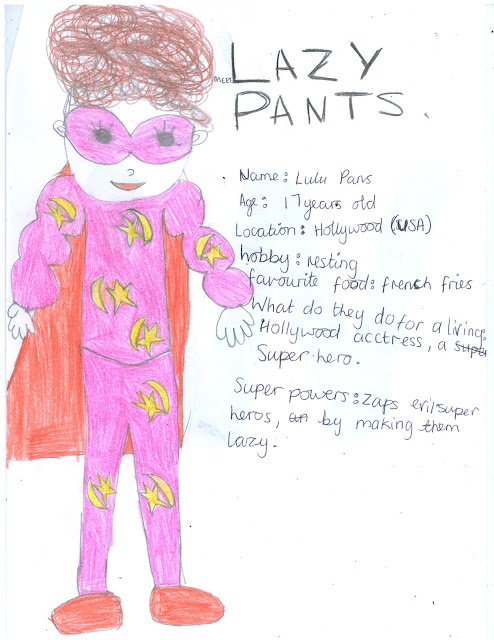 MEET LAZY
PANTS.
Name: Lulu Pans
Age: 17 years old
Location: Hollywood (USA)
hobby: resting
favourite food: french fries
What do they do for a living:
Hollywood acctress, a super
Super hero.
Super powers: Zaps evil super
heros, an by making them
lazy.